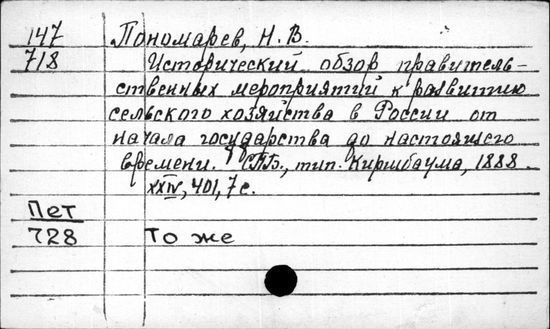 147 Пономарев, Н. В.
718 Исторический обзор правитель-
ственных мероприятий к развитию
сельского хозяйства в России от
начала государства до настоящего
времени. СПБ., тип. Киршбаума, 1888.
XXIV, 401, 7 с.
Пет
728 То же